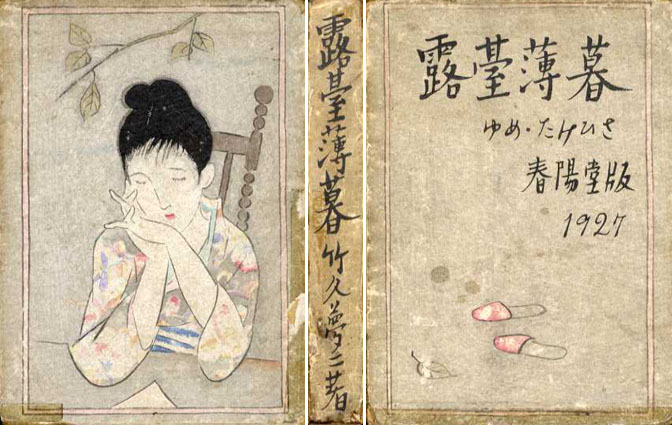 露臺薄暮
竹久夢二著
露臺薄暮
ゆめ・たけひさ
春陽堂版
1927